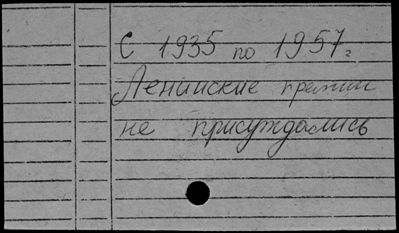 С 1935 по 1957г
Ленинские премии
не присуждались